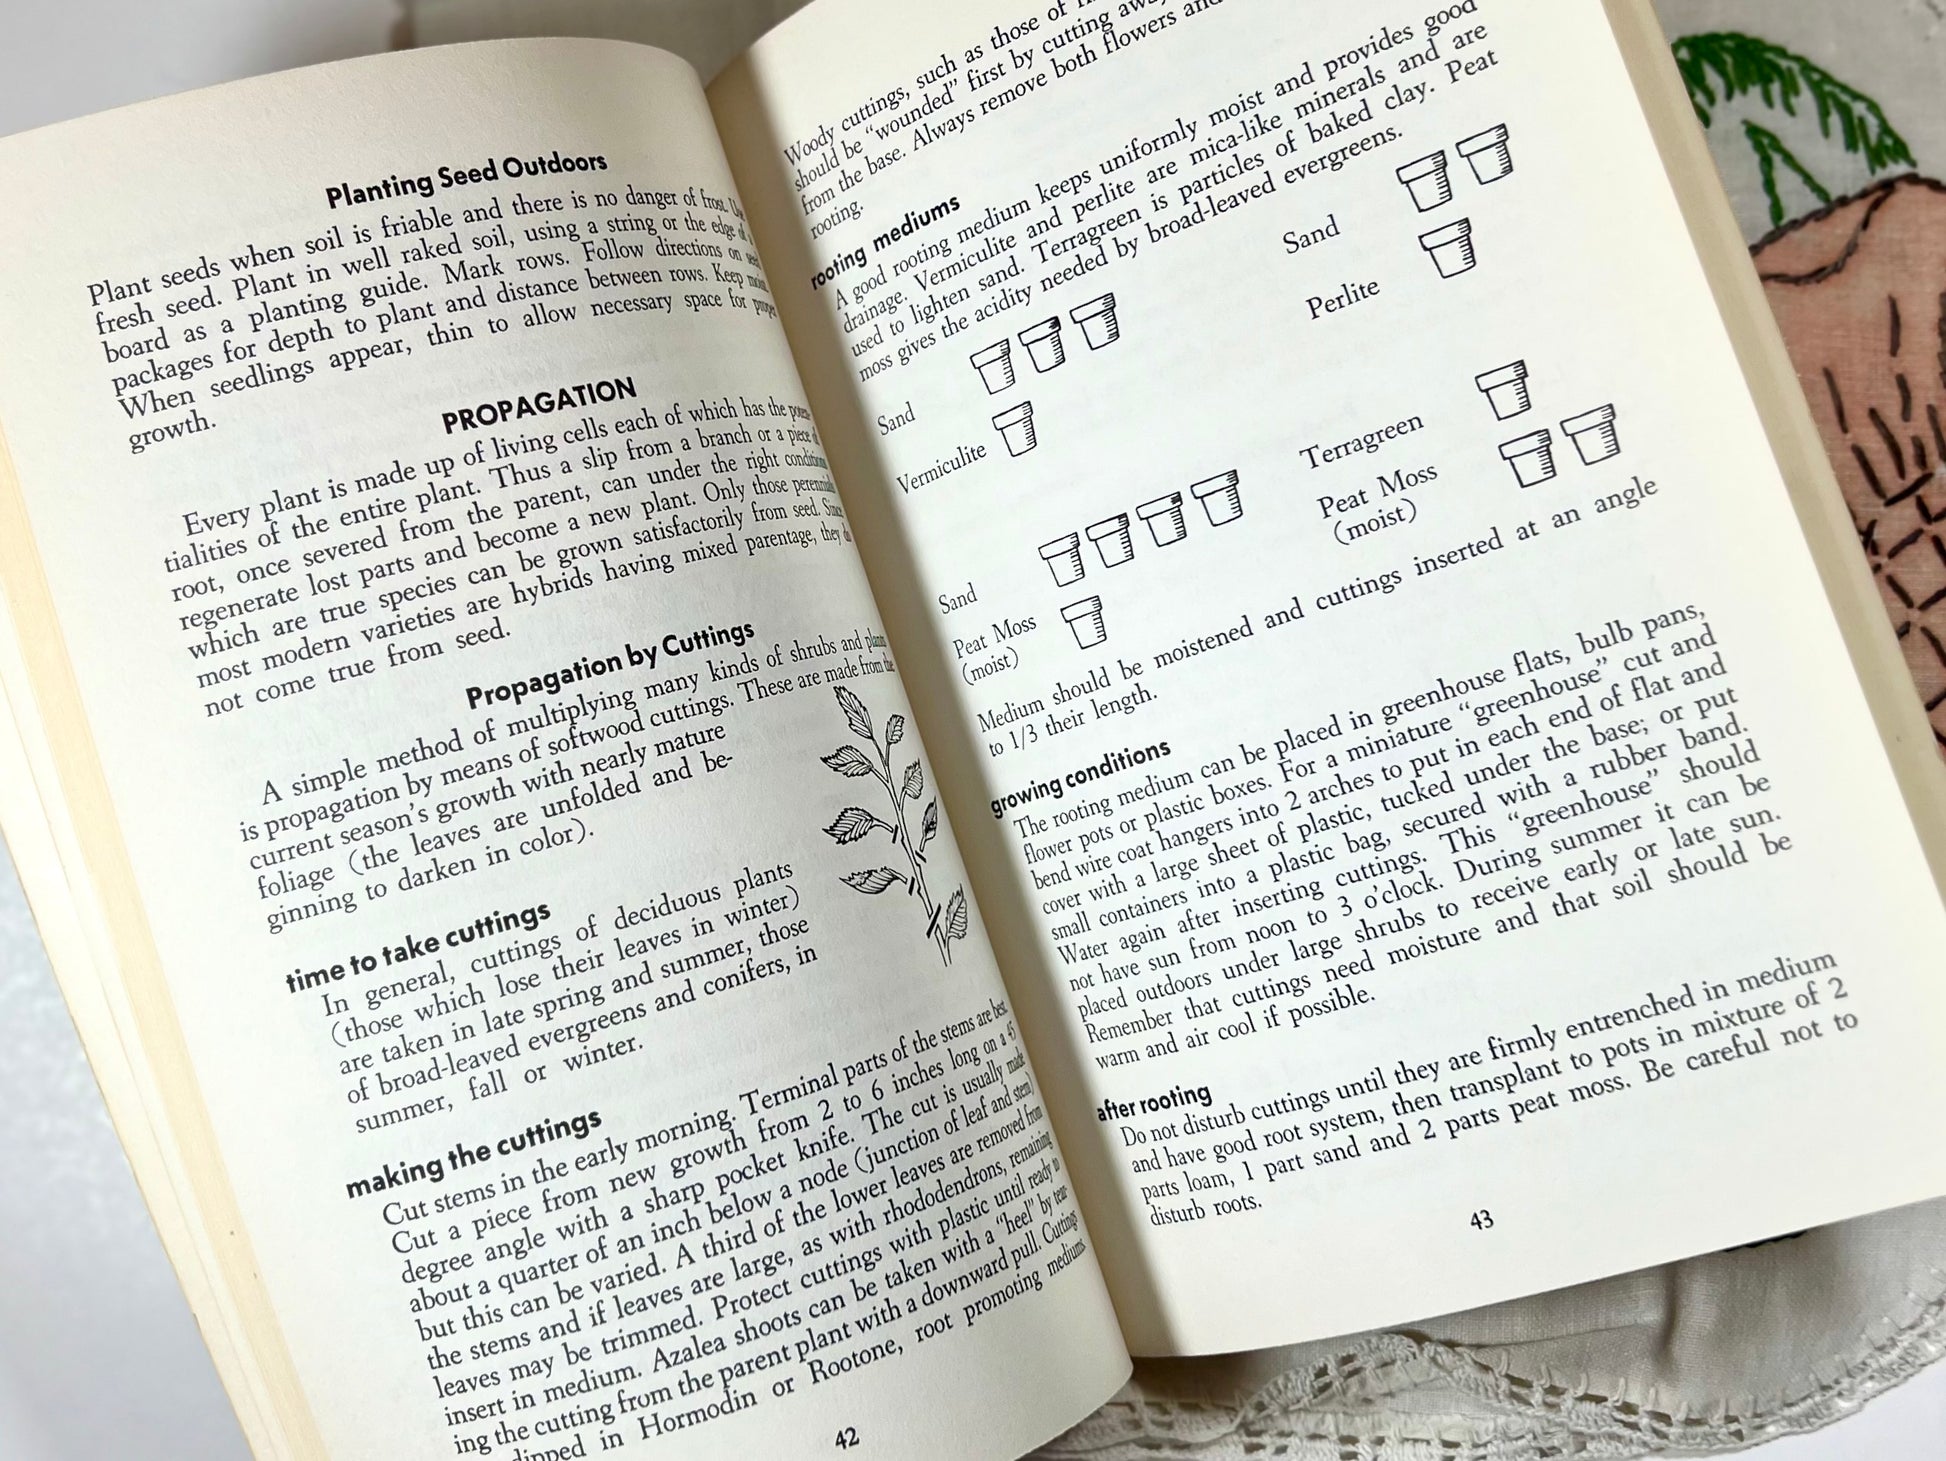 Planting Seed Outdoors
Plant seeds when soil is friable and there is no danger of frost. Use
fresh seed. Plant in well raked soil, using a string or the edge of a
board as a planting guide. Mark rows. Follow directions on seed
packages for depth to plant and distance between rows. Keep moist.
When seedlings appear, thin to allow necessary space for proper
growth.
PROPAGATION
Every plant is made up of living cells each of which has the poten-
tialities of the entire plant. Thus a slip from a branch or a piece of
root, once severed from the parent, can under the right conditions
regenerate lost parts and become a new plant. Only those perennials
which are true species can be grown satisfactorily from seed. Since
most modern varieties are hybrids having mixed parentage, they do
not come true from seed.
Propagation by Cuttings
A simple method of multiplying many kinds of shrubs and plants
is propagation by means of softwood cuttings. These are made from the
current season's growth with nearly mature
foliage (the leaves are unfolded and be-
ginning to darken in color).
time to take cuttings
In general, cuttings of deciduous plants
(those which lose their leaves in winter)
are taken in late spring and summer, those
of broad-leaved evergreens and conifers, in
summer, fall or winter.
making the cuttings
Cut stems in the early morning. Terminal parts of the stems are best.
Cut a piece from new growth from 2 to 6 inches long on a 45
degree angle with a sharp pocket knife. The cut is usually made
about a quarter of an inch below a node (junction of leaf and stem)
but this can be varied. A third of the lower leaves are removed from
the stems and if leaves are large, as with rhododendrons, remaining
leaves may be trimmed. Protect cuttings with plastic until ready to
insert in medium. Azalea shoots can be taken with a "heel" by tear-
ing the cutting from the parent plant with a downward pull. Cuttings
dipped in Hormodin or Rootone, root promoting mediums
42
Woody cuttings, such as those of
should be "wounded" first by cutting away
from the base. Always remove both flowers and
rooting.
rooting mediums
A good rooting medium keeps uniformly moist and provides good
drainage. Vermiculite and perlite are mica-like minerals and are
used to lighten sand. Terragreen is particles of baked clay. Peat
moss gives the acidity needed by broad-leaved evergreens.
Sand
Vermiculite
Sand
Perlite
Sand
Peat Moss
(moist)
Terragreen
Peat Moss
(moist)
Medium should be moistened and cuttings inserted at an angle
to 1/3 their length.
growing conditions
The rooting medium can be placed in greenhouse flats, bulb pans,
flower pots or plastic boxes. For a miniature "greenhouse" cut and
bend wire coat hangers into 2 arches to put in each end of flat and
cover with a large sheet of plastic, tucked under the base; or put
small containers into a plastic bag, secured with a rubber band.
Water again after inserting cuttings. This "greenhouse" should
not have sun from noon to 3 o'clock. During summer it can be
placed outdoors under large shrubs to receive early or late sun.
Remember that cuttings need moisture and that soil should be
warm and air cool if possible.
after rooting
Do not disturb cuttings until they are firmly entrenched in medium
and have good root system, then transplant to pots in mixture of 2
parts loam, 1 part sand and 2 parts peat moss. Be careful not to
disturb roots.
43